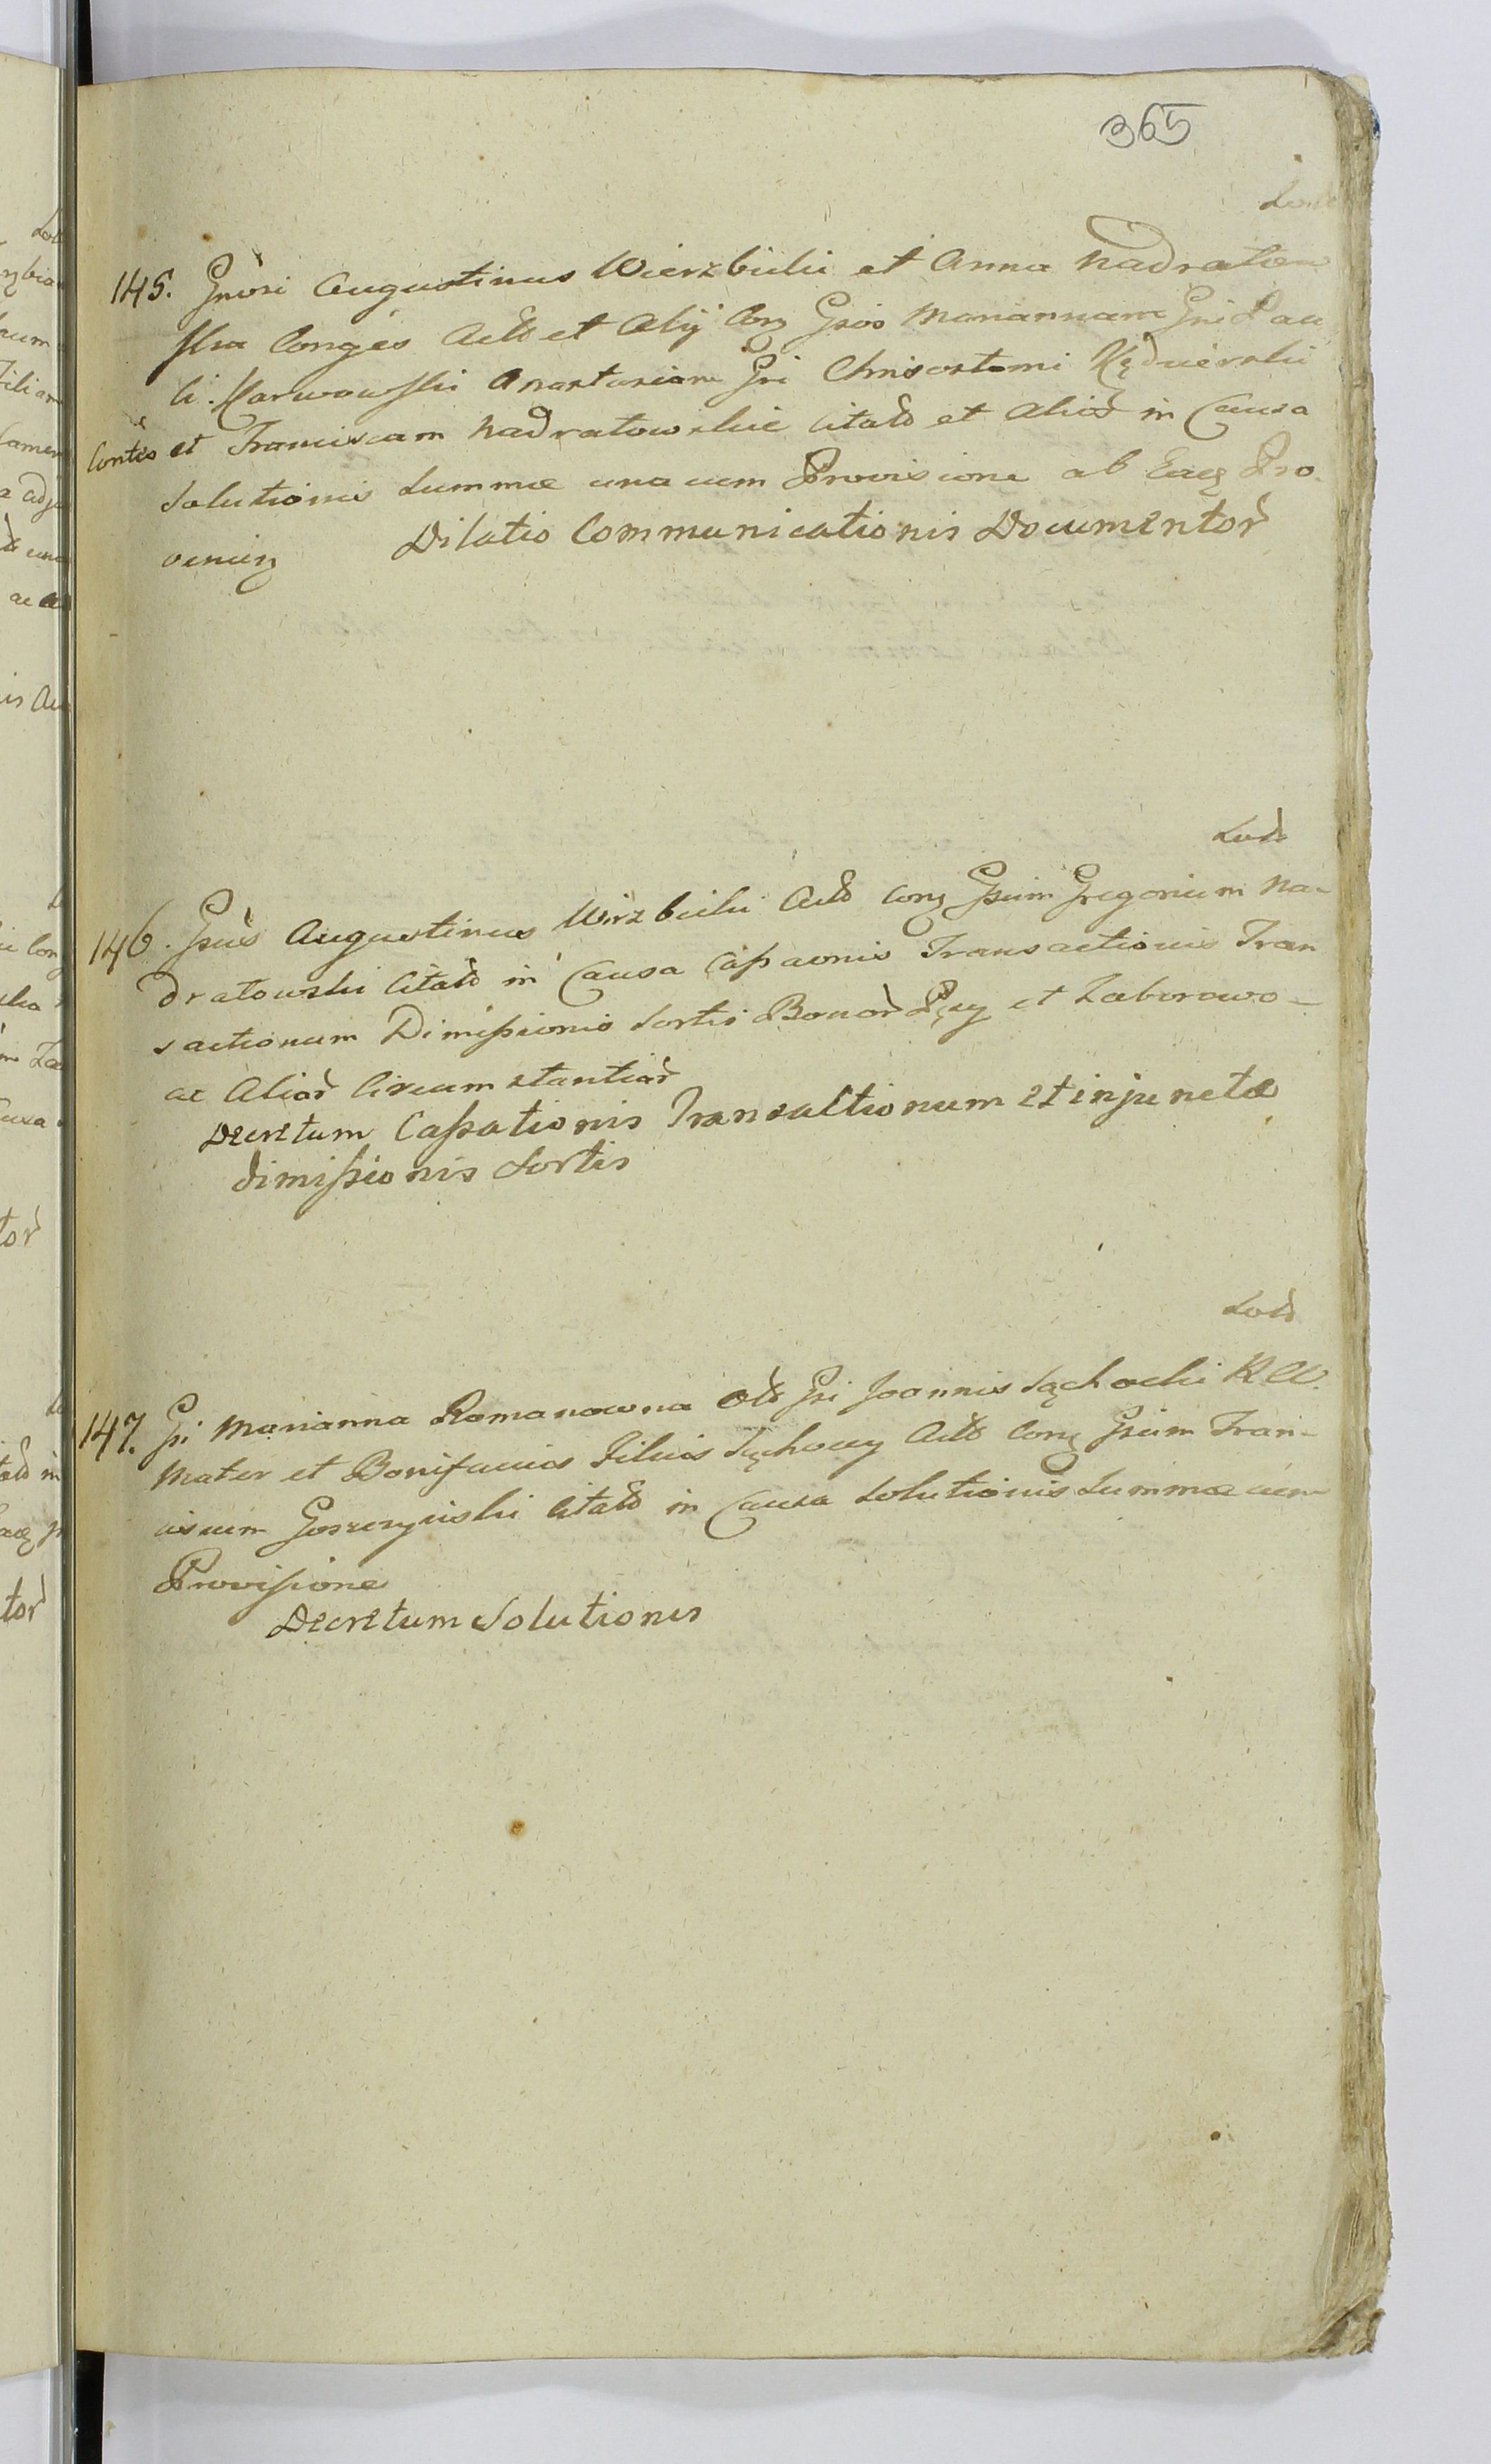 365
145. Gnosi Augustinus Wierzbicki et Anna Nadratow
ska Conges Actõ et Alij Con Gsos Mariannam Gni Pau
li Karwowski Anastasiam Gsi Chrisostomi Kędzierski
Contes et Franciscam Nadratowskie Citatõ et Aliosđ in Causa
Solutionis Summæ una cum Provisione ab Eaq Pro
venien
Dilatio Communicationis Documentor
Lodõ
146. Gsus Augustinus Wirzbicki Actõ Con Gsum Gregorium Na-
dratowski Citatõ in Causa Cassaonis Transactionis Tran
sactionum Dimissionis Sortis Bonor Pęzy et Zaborowo
ac Aliar Circumstantiar
Decretum Cassationis Transactionum Et injunctæ
dimissionis Sortis
Lodõ
147. Gsi Marianna Romanowna Olõ Gsi Joannis Sąchocki R W.
Mater et Bonifacius Filius Sąchoccy Actõ Con Gsum Fran-
ciscum Goszczynski Citatõ in Causa Solutionis Summæ cum
Provisione
Decretum Solutionis